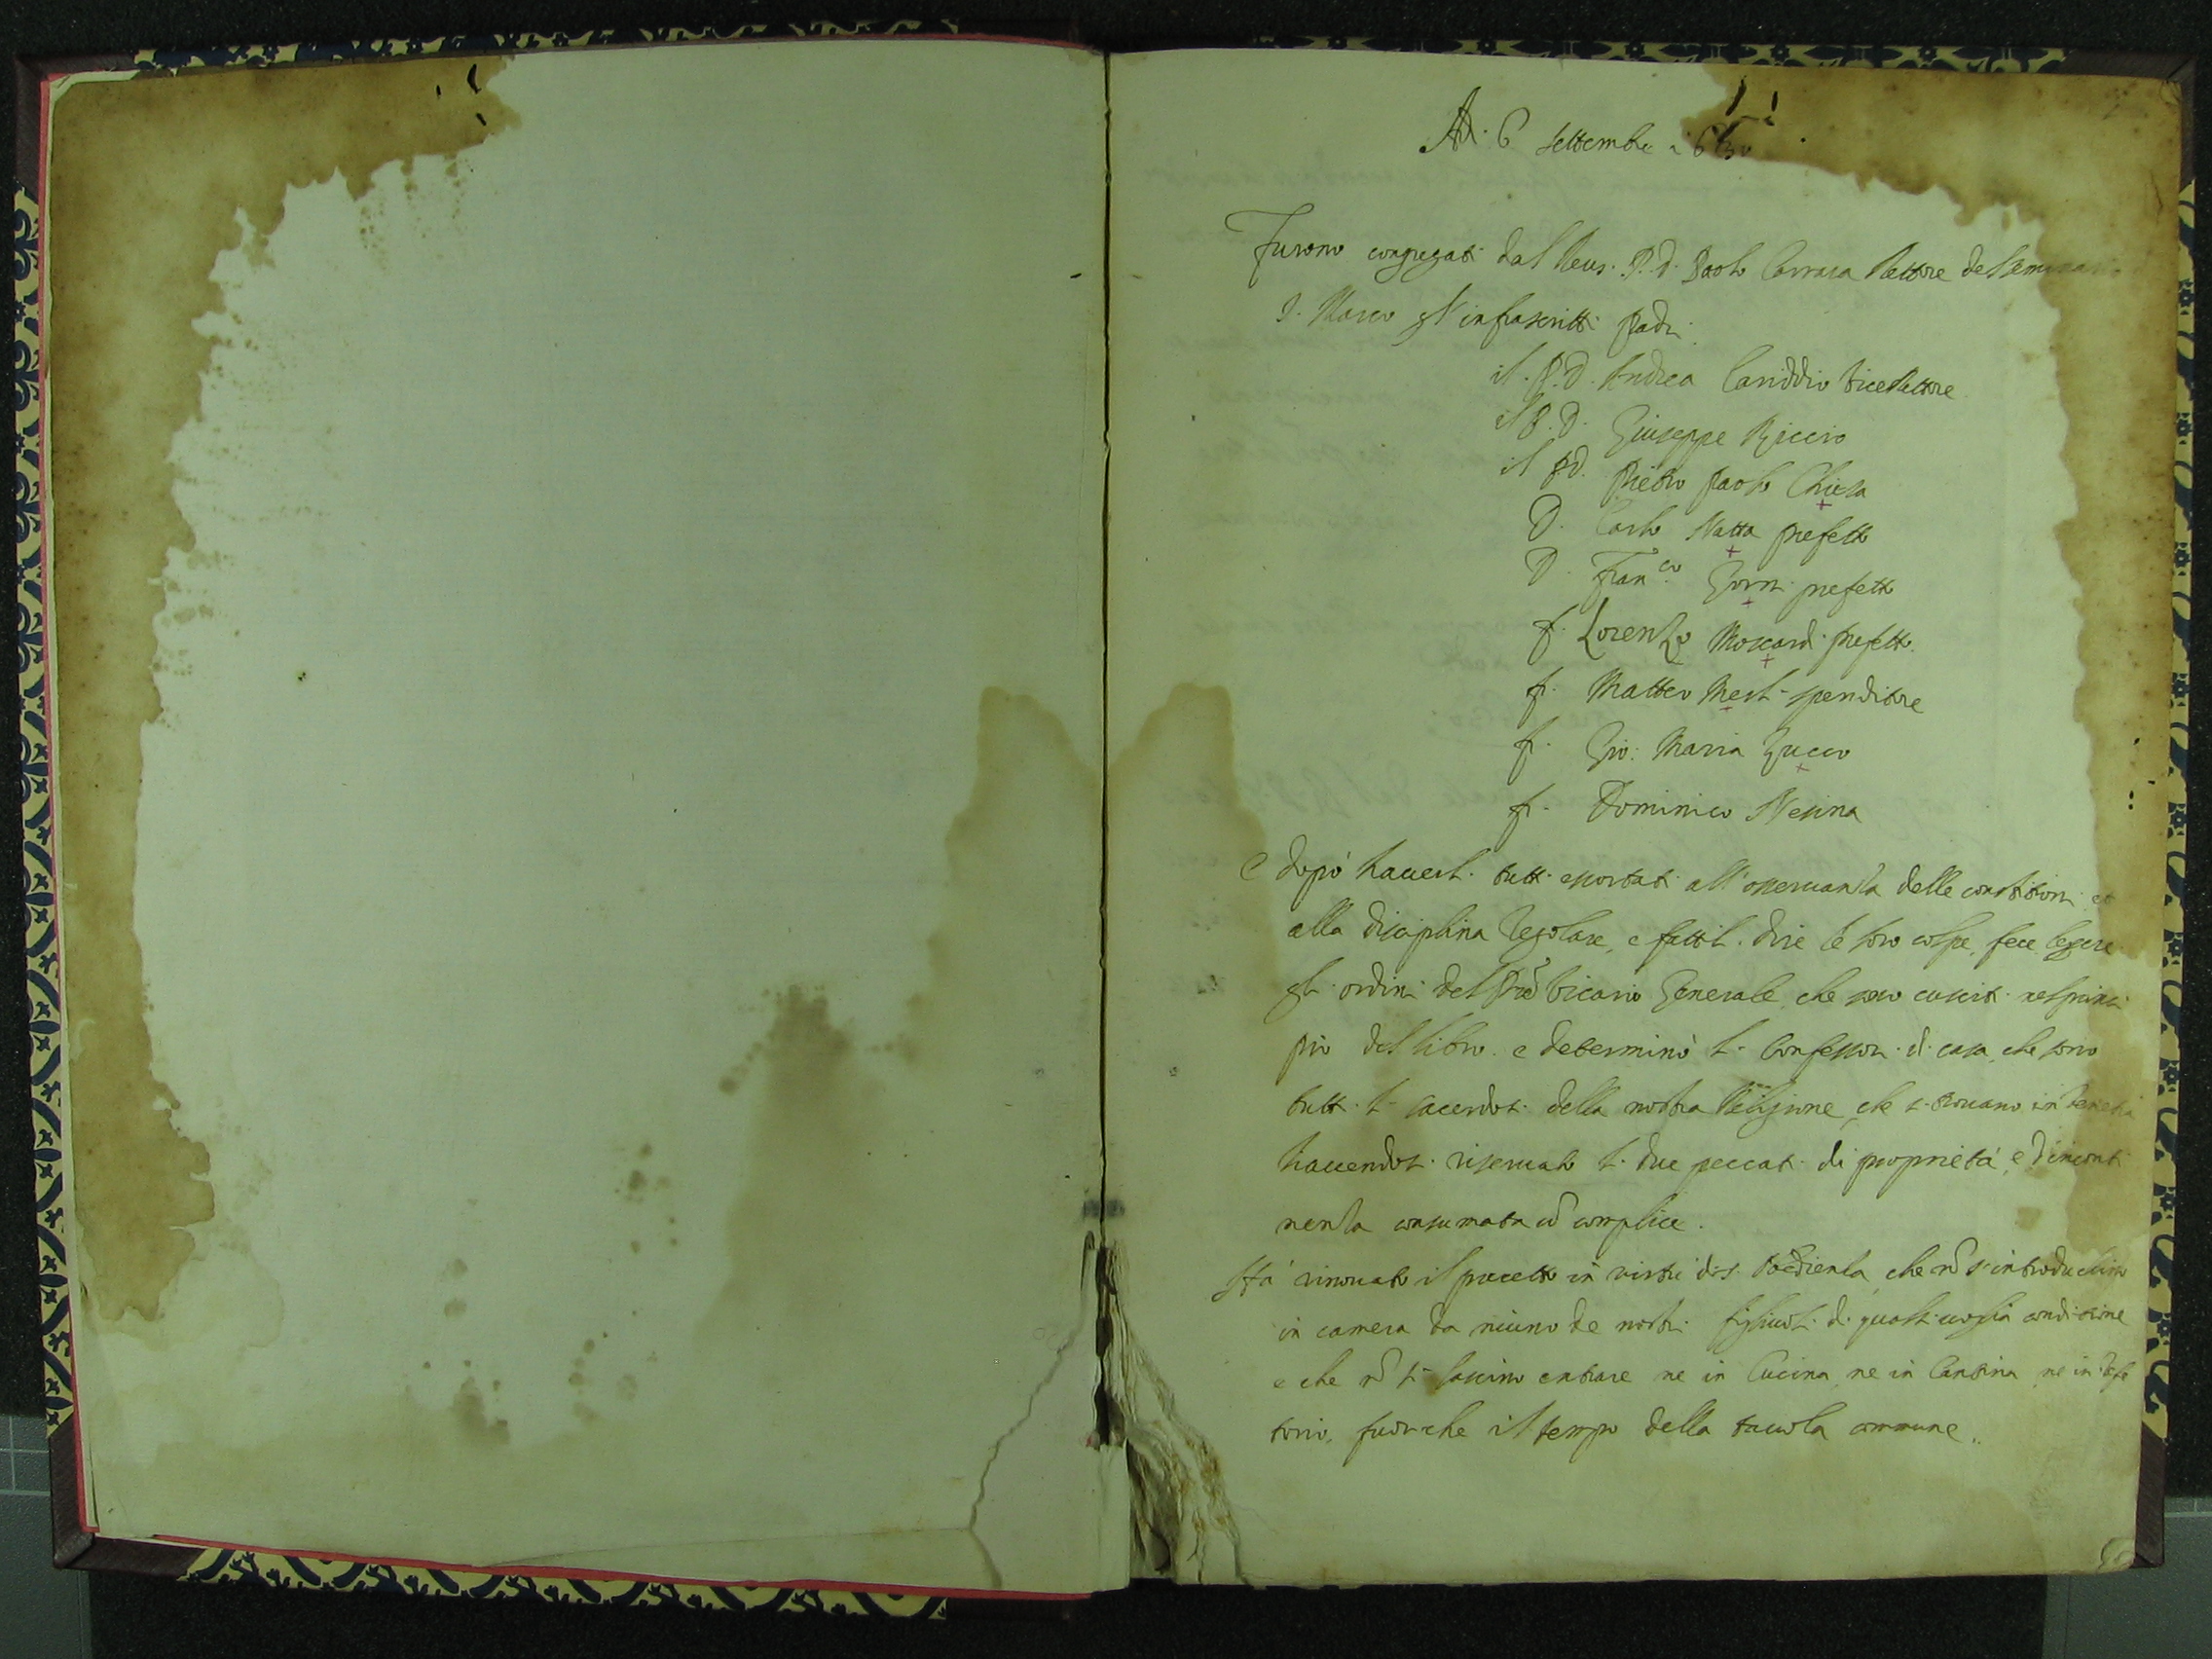 Adi 6 settembre 1650
Furono congregati dal Reu. P. D. Paolo Carrara Rettore del seminario
S. Marco gl'infrascritti Padri
il P. D. Andrea Cariddio ViceRettore
il P. D. Giuseppe Riccio
il P D. Pietro Paolo Chiesa
D. Carlo Natta prefetto
D. Fran.co Gorni prefetto
f. Lorenzo Moscardi prefetto
fr. Matteo Mesti spenditore
fr. Gio: Maria Zucco
fr. Dominico Nesina
E dopò hauerli tutti essortati all'osseruanza delle constitioni et
alla disciplina Regolare, e fattili dire le loro colpe, fece leggere
gli ordini del Prē Vicario Generale, che sono cusciti nel princi
pio del libro. e determinò li Confessori di casa, che sono
tutti li sacerdoti della nostra Religione, che si trouano in Venetia
hauendosi riseruato li due peccati di proprietà, e d'inconti
nenza consumata cō complice.
Hà rinouato il precetto in virtù di S. Obedienza, che nō s'introduchino
in camera da niuno de nostri figliuoli di qualsiuoglia conditione
e che nō si lascino entrare ne in Cucina, ne in Cantina, ne in Refe
torio, fuorche il tempo della tauola commune.